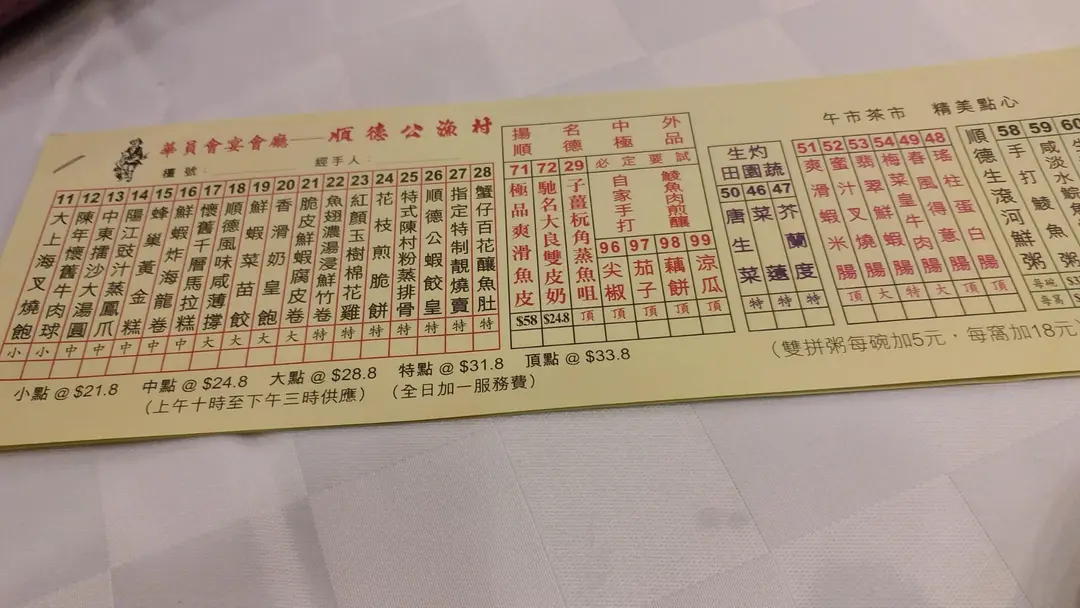 華員會宴會廳——順德公漁村
檯號：
經手人：
11 大上海叉燒飽 小
12 陳年懷舊牛肉球 小
13 中東擂沙大湯圓 中
14 陽江豉汁蒸鳳爪 中
15 蜂巢黃金糕 中
16 鮮蝦炸海龍卷 中
17 懷舊千層馬拉糕 中
18 順德風味咸薄撐 大
19 鮮蝦菜苗餃 大
20 香滑奶皇飽 大
21 脆皮鮮蝦腐皮卷 大
22 魚翅濃湯浸鮮竹卷 特
23 紅顏玉樹棉花雞 特
24 花枝煎脆餅 特
25 特式陳村粉蒸排骨 特
26 順德公蝦餃皇 特
27 指定特制靚燒賣 特
28 蟹仔百花釀魚肚 特
小點 @ $21.8 中點 @ $24.8 大點 @ $28.8 特點 @ $31.8 頂點 @ $33.8
（上午十時至下午三時供應） （全日加一服務費）
揚名中外
順德極品
71 極品爽滑魚皮 $58
72 馳名大良雙皮奶 $24.8
29 子薑杬角蒸魚咀 頂
必定要試
自家手打
鯪魚肉煎釀
96 尖椒 頂
97 茄子 頂
98 藕餅 頂
99 涼瓜 頂
生灼
田園蔬
50 唐生菜 特
46 菜薳 特
47 芥蘭度 特
午市茶市 精美點心
51 爽滑蝦米腸 頂
52 蜜汁叉燒腸 大
53 翡翠鮮蝦腸 特
54 梅菜皇牛肉腸 大
49 春風得意腸 頂
48 瑤柱蛋白腸 頂
順德生滾河鮮粥
58 手打鯪魚粥
59 咸淡水
60
每碗
每窩
（雙拼粥每碗加5元，每窩加18元）